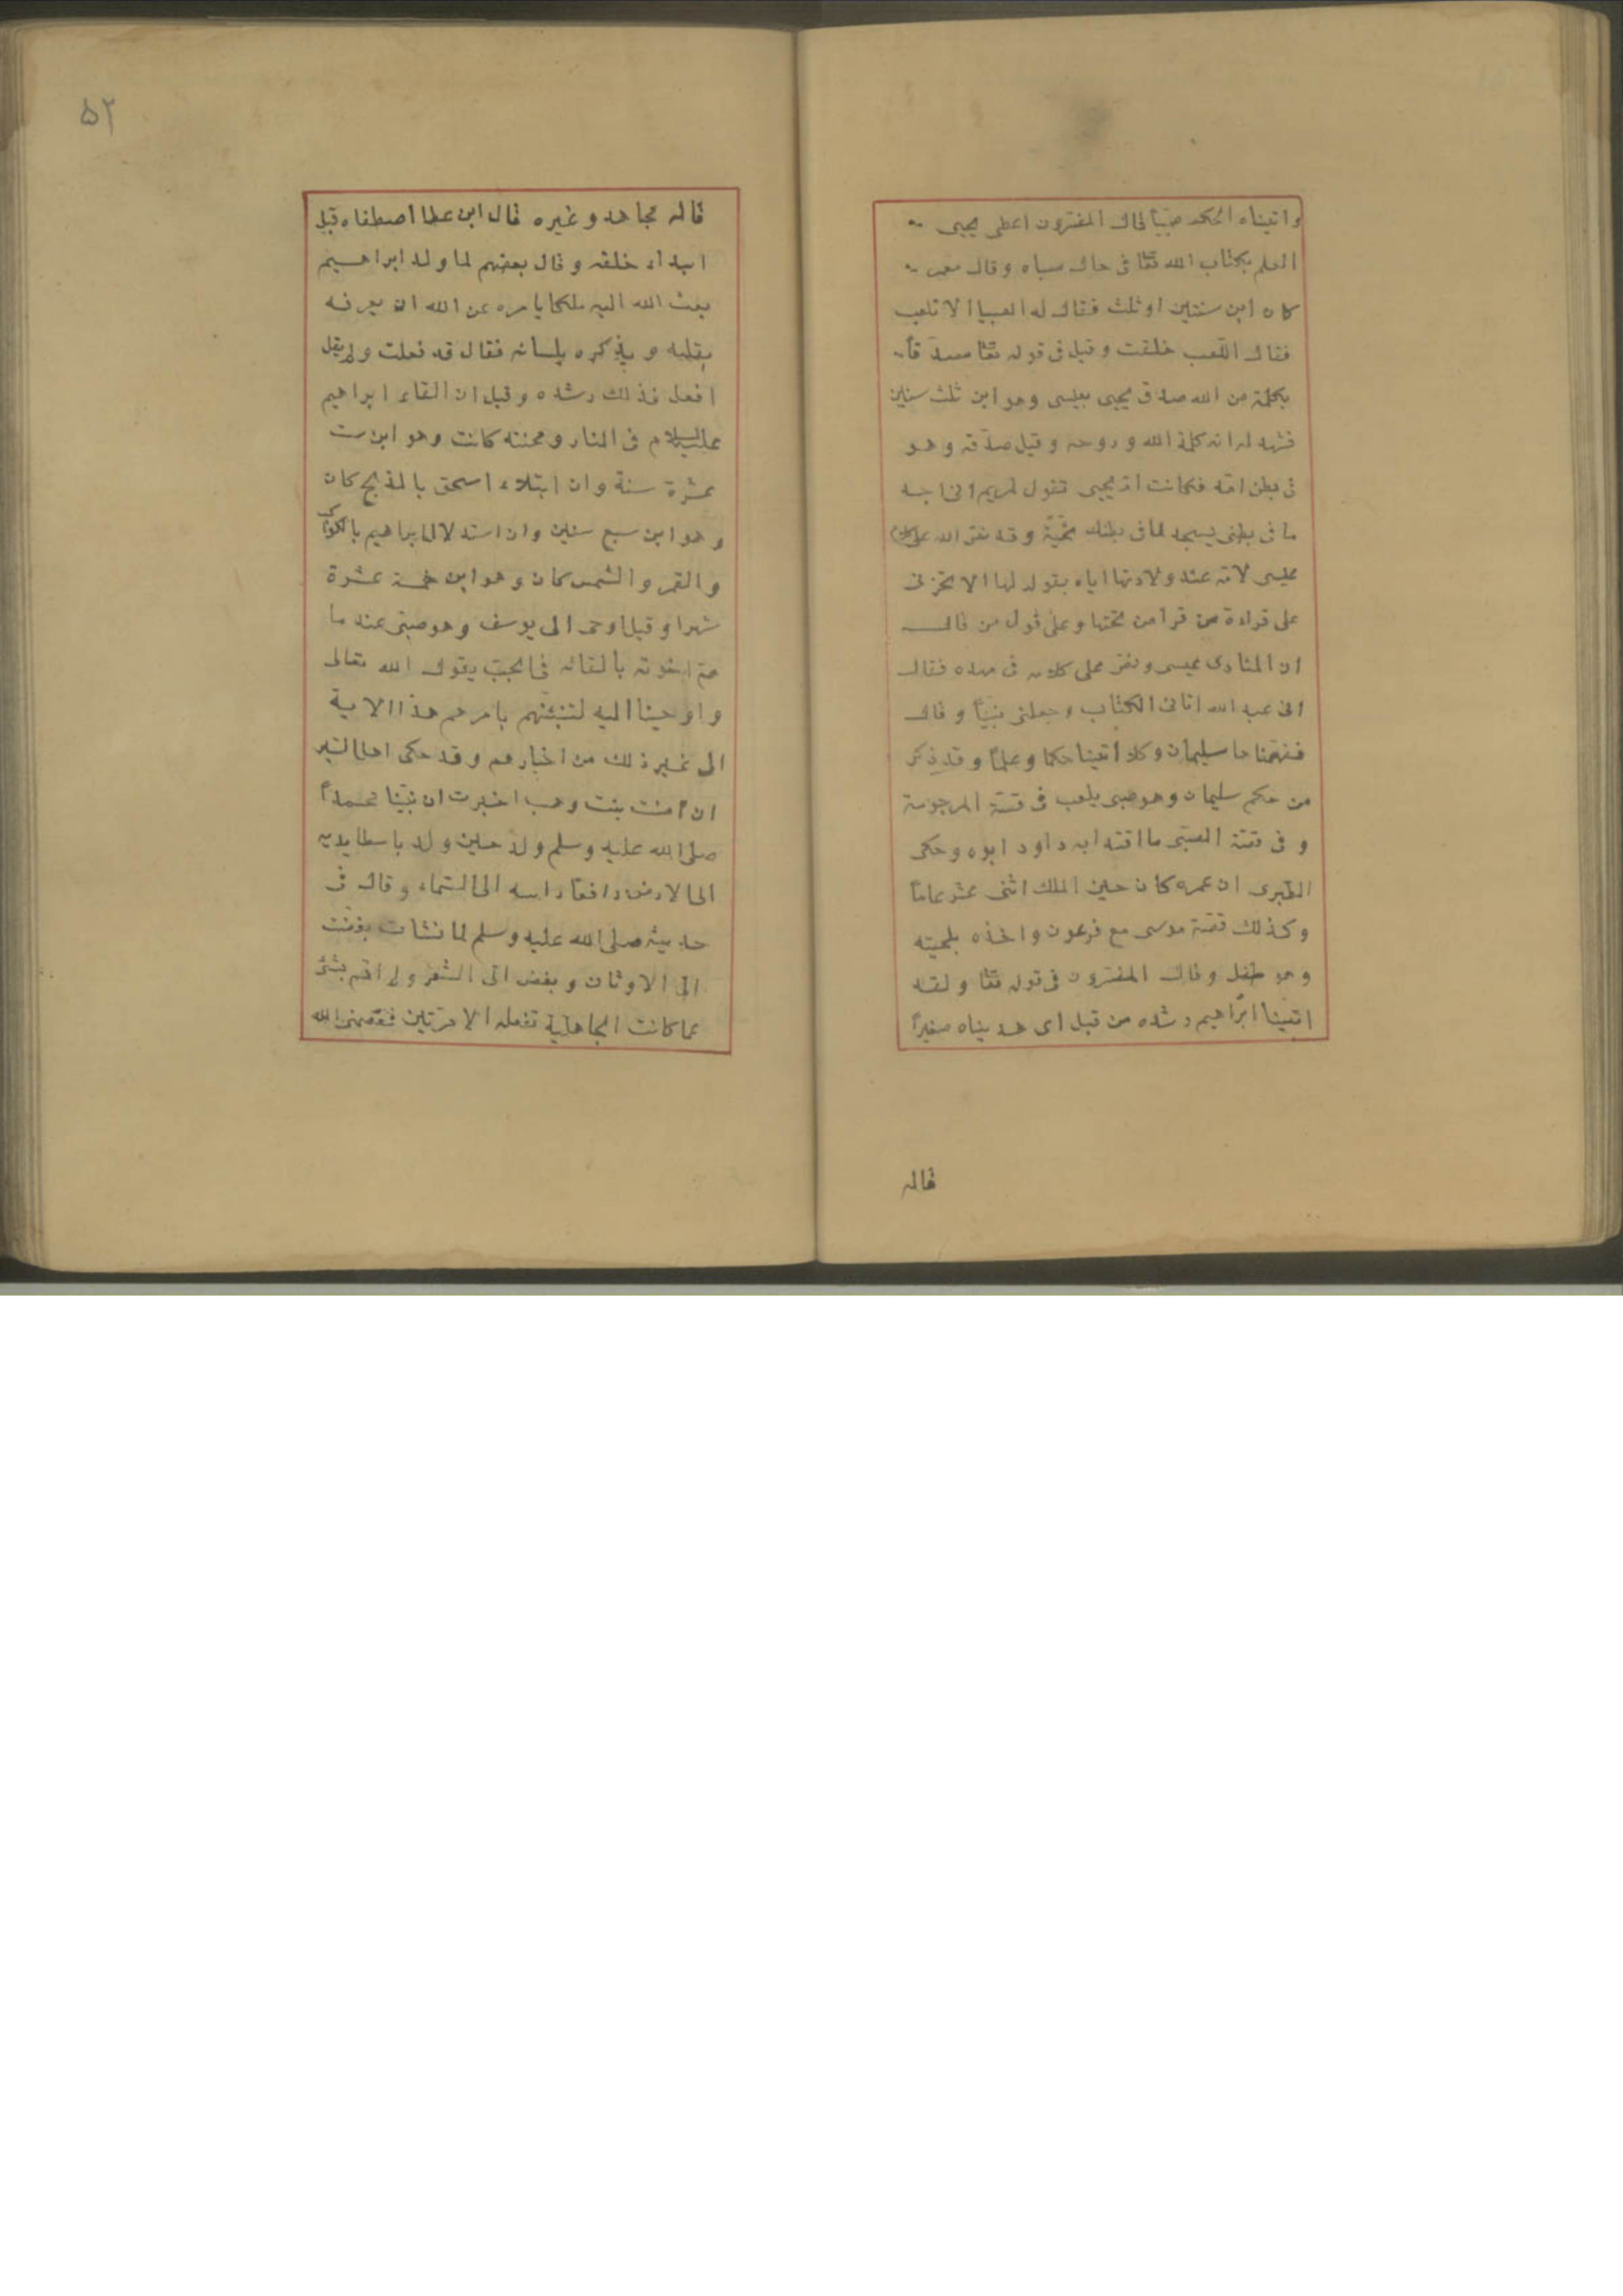 واتيناه الحكم صبيّا قال المفسّرون اعطى يحيى
العلم بكتاب الله تعا فى حال صباه وقال معمر
كان ابن سنتين او ثلث فقال له الصبيان الا تلعب
فقال اللّعب خلقت وقيل فى قوله تعا مصدقا
بكلمة من الله صدق يحيى بعيسى وهو ابن ثلث سنين
فشهد له انه كلمة الله وروحه وقيل صدّقه وهو
فى بطن امّه فكانت امّ يحيى تقول لمريم انى اجد
ما فى بطنى يسجد لما فى بطنك تحيّةً وقد نصّ الله على
عيسى لامّه عند ولادتها اياه بقوله لها الا تحزنى
على قراءة من قرا من تحتها وعلى قول من قال
ان المنادى عيسى ونصّ على كلامه فى مهده فقال
انى عبد الله اتانى الكتاب وجعلنى نبيّا وقال
ففهّمناها سليمان وكلا اتينا حكما وعلماً وقد ذكر
من حكم سليمان وهو صبى يلعب فى قصّة المرجومة
وفى قصّة الصبّى ما اقتدا به داود ابوه وحكى
الطّبرى ان عمره كان حين الملك اثنى عشر عاماً
وكذلك قصّة موسى مع فرعون واخذه بلحيته
وهو طفل وقال المفسّرون فى قوله تعا ولقد
اتينا ابراهيم رشده من قبل اى هديناه صغيراً
قاله
۵۲
قاله مجاهد وغيره قال ابن عطا اصطفاه قبل
ابداء خلقه وقال بعضهم لما ولد ابراهيم
بعث الله اليه ملكا يامره عن الله ان يعرفه
بقلبه ويذكره بلسانه فقال قد فعلت ولم يقل
افعل فذلك رشده وقيل ان القاء ابراهيم
عليه السلام فى النار ومحنته كانت وهو ابن ست
عشرة سنة وان ابتلاء اسحق بالذبح كان
وهو ابن سبع سنين وان استدلال ابراهيم بالكوكب
والقمر والشمس كان وهو ابن خمسة عشرة
شهرا وقيل اوحى الى يوسف وهو صبىّ عند ما
همّ اخوته بالقائه فى الجبّ يقول الله تعالى
واوحينا اليه لتنبئنّهم بامرهم هذا الاية
الى غير ذلك من اخبارهم وقد حكى اهل السّير
ان آمنت بنت وهب اخبرت ان نبيّنا محمداً
صلى الله عليه وسلم ولد حين ولد باسطا يديه
الى الارض رافعاً راسه الى السّماء وقال فى
حديثه صلى الله عليه وسلم لما نشات بغّضت
الىّ الاوثان وبغض الىّ الشعر ولم اهم بشئ
مما كانت الجاهلية تفعله الا مرّتين فعصمنى الله